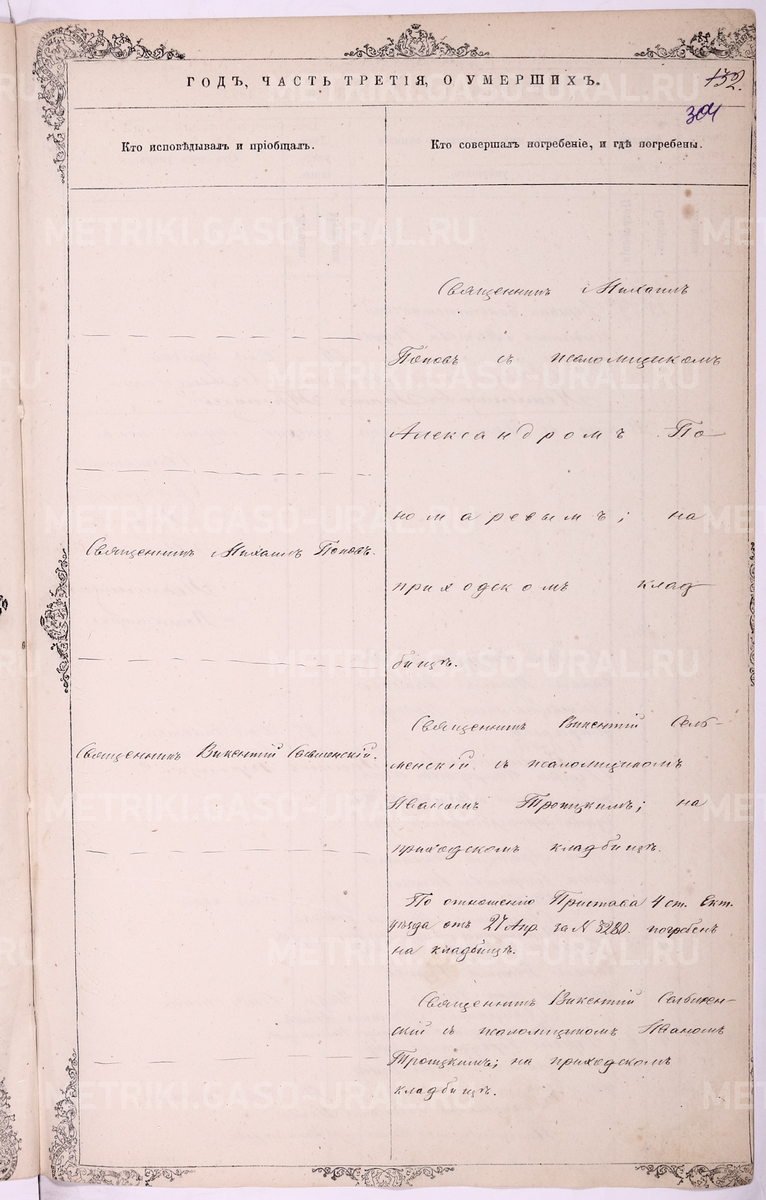 ГОДЪ, ЧАСТЬ ТРЕТІЯ, О УМЕРШИХЪ.
152.
304
Кто исповѣдывалъ и пріобщалъ.
Кто совершалъ погребеніе, и гдѣ погребены.
Священникъ Михаилъ Поповъ.
Священникъ Викентій
Священникъ Михаилъ
Поповъ съ псаломщикомъ
Александромъ По
номаревымъ; на
приходскомъ клад
бищѣ.
Священникъ Викентій Сель
менскій съ псаломщикомъ
Иваномъ Троицкимъ; на
приходскомъ кладбищѣ.
По отношенію Пристава 4 ст. Ект.
уѣзда отъ 27 Апр. за № 3280. погребенъ
на кладбищѣ.
Священникъ Викентій
скій съ псаломщикомъ Иваномъ
Троицкимъ; на приходскомъ
кладбищѣ.
METRIKI.GASO-URAL.RU